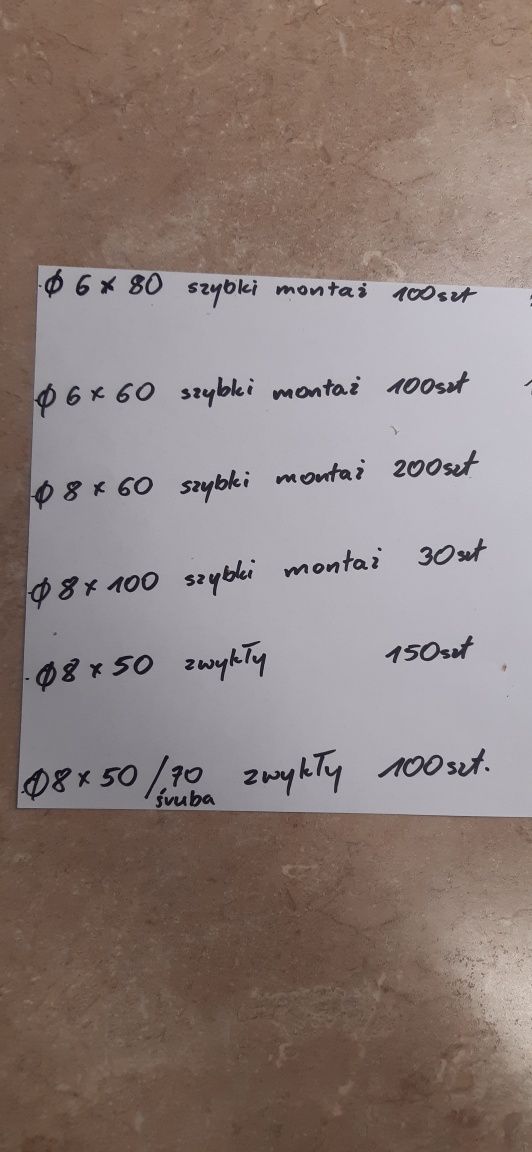 φ 6 x 80 szybki montaż 100szt
φ 6 x 60 szybki montaż 100szt
φ 8 x 60 szybki montaż 200szt
φ 8 x 100 szybki montaż 30szt
φ 8 x 50 zwykły 150szt
φ 8 x 50 / 70 zwykły 100szt.
śruba